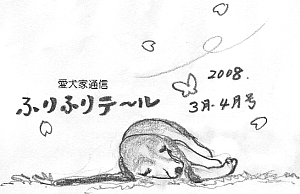 愛犬家通信
ふりふりテ〜ル
2008.
3月・4月号